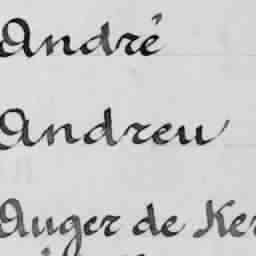 André
Andreu
Auger de Ker